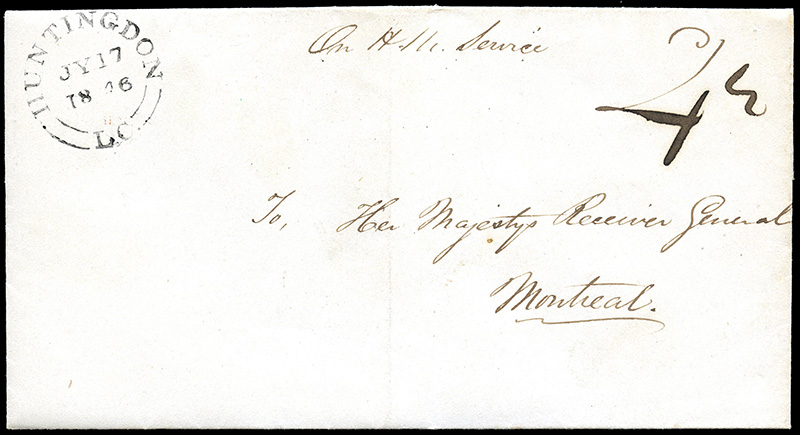 HUNTINGDON
JY 17
1846
L.C.
On H.M. Service
4½
To, Her Majestys Receiver General
Montreal.